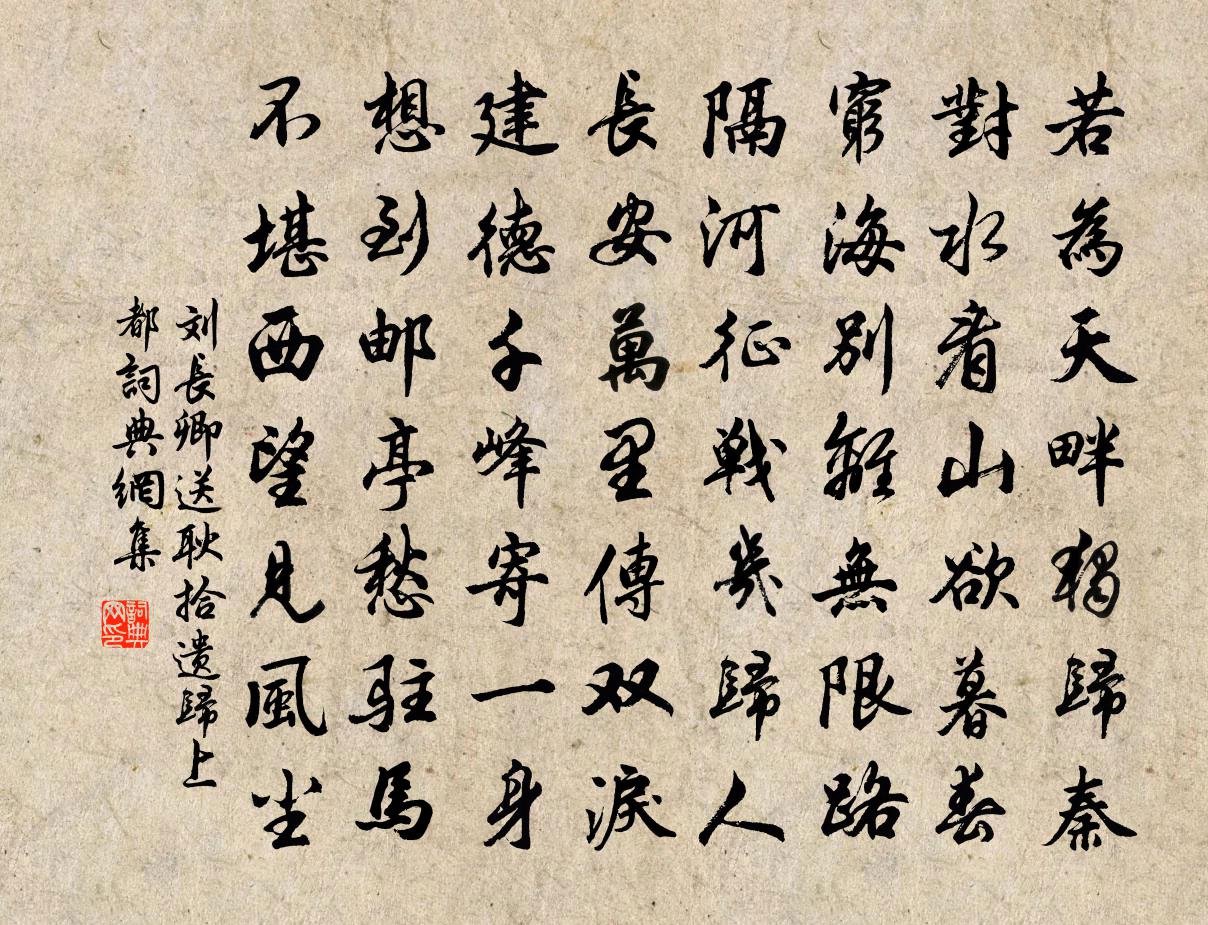 若為天畔獨歸秦
對水看山欲暮春
窮海別離無限路
隔河征戰幾歸人
長安萬里傳双淚
建德千峰寄一身
想到邮亭愁駐馬
不堪西望見風尘
刘長卿送耿拾遗歸上
都詞典網集
詞典网印